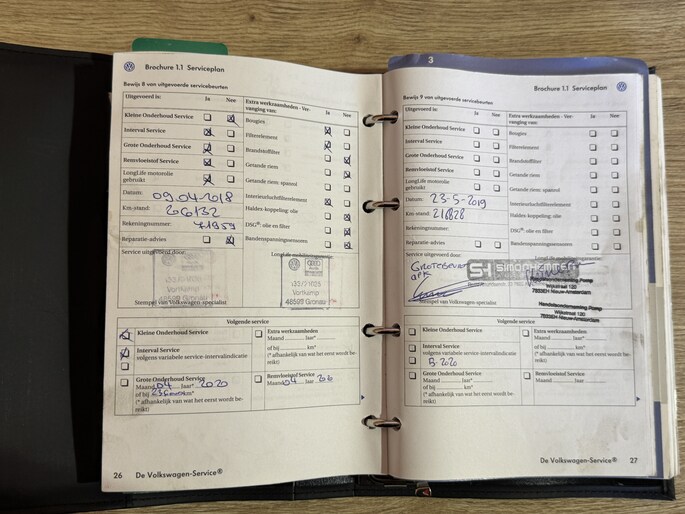 Brochure 1.1 Serviceplan
Bewijs 8 van uitgevoerde servicebeurten
Uitgevoerd is: Ja Nee
Kleine Onderhoud Service
Interval Service
Grote Onderhoud Service
Remvloeistof Service
LongLife motorolie
gebruikt
Datum: 09.04-2018
Km-stand: 206132
Rekeningnummer: 71959
Reparatie-advies
Service uitgevoerd door:
Vortkamp
48599 Gronau
Stempel van Volkswagen-specialist
Extra werkzaamheden - Ver-
vanging van: Ja Nee
Bougies
Filterelement
Brandstoffilter
Getande riem
Getande riem: spanrol
Interieurluchtfilterelement
Haldex-koppeling: olie
DSG®: olie en filter
Bandenspanningssensoren
Volgende service
Kleine Onderhoud Service
Interval Service
volgens variabele service-intervalindicatie
Grote Onderhoud Service
Maand 04 Jaar* 2020
of bij km*
(* afhankelijk van wat het eerst wordt be-
reikt)
Extra werkzaamheden
Maand Jaar*
of bij km*
(* afhankelijk van wat het eerst wordt be-
reikt)
Remvloeistof Service
Maand 04 Jaar
26 De Volkswagen-Service®
3
Brochure 1.1 Serviceplan
Bewijs 9 van uitgevoerde servicebeurten
Uitgevoerd is: Ja Nee
Kleine Onderhoud Service
Interval Service
Grote Onderhoud Service
Remvloeistof Service
LongLife motorolie
gebruikt
Datum: 23-5-2019
Km-stand: 216828
Rekeningnummer:
Reparatie-advies
Service uitgevoerd door:
Grote Beurt
APK
Stempel van Volkswagen-specialist
Extra werkzaamheden - Ver-
vanging van: Ja Nee
Bougies
Filterelement
Brandstoffilter
Getande riem
Getande riem: spanrol
Interieurluchtfilterelement
Haldex-koppeling: olie
DSG®: olie en filter
Bandenspanningssensoren
Wijkstraat 120
7833EH Nieuw-Amsterdam
Handelsonderneming Pomp
Wijkstraat 120
7833EH Nieuw-Amsterdam
Volgende service
Kleine Onderhoud Service
Interval Service
volgens variabele service-intervalindicatie
5-2020
Grote Onderhoud Service
Maand Jaar*
of bij km*
(* afhankelijk van wat het eerst wordt be-
reikt)
Extra werkzaamheden
Maand Jaar*
of bij km*
(* afhankelijk van wat het eerst wordt be-
reikt)
Remvloeistof Service
Maand Jaar
De Volkswagen-Service® 27